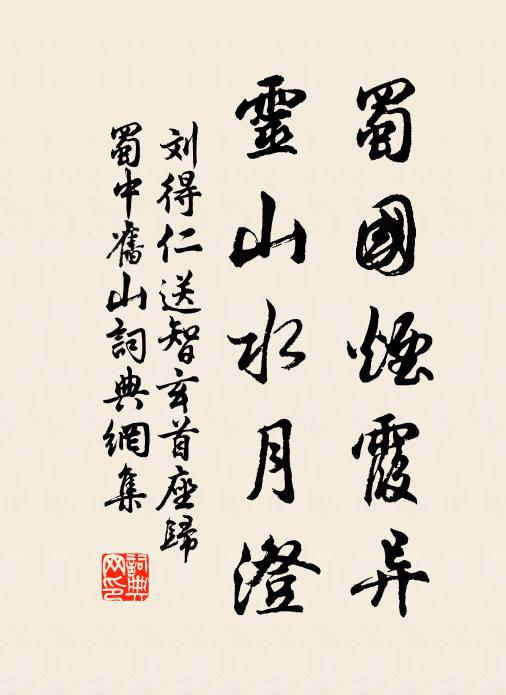 蜀國煙霞异
靈山水月澄
刘得仁送智玄首座歸
蜀中舊山詞典網集
詞典網印